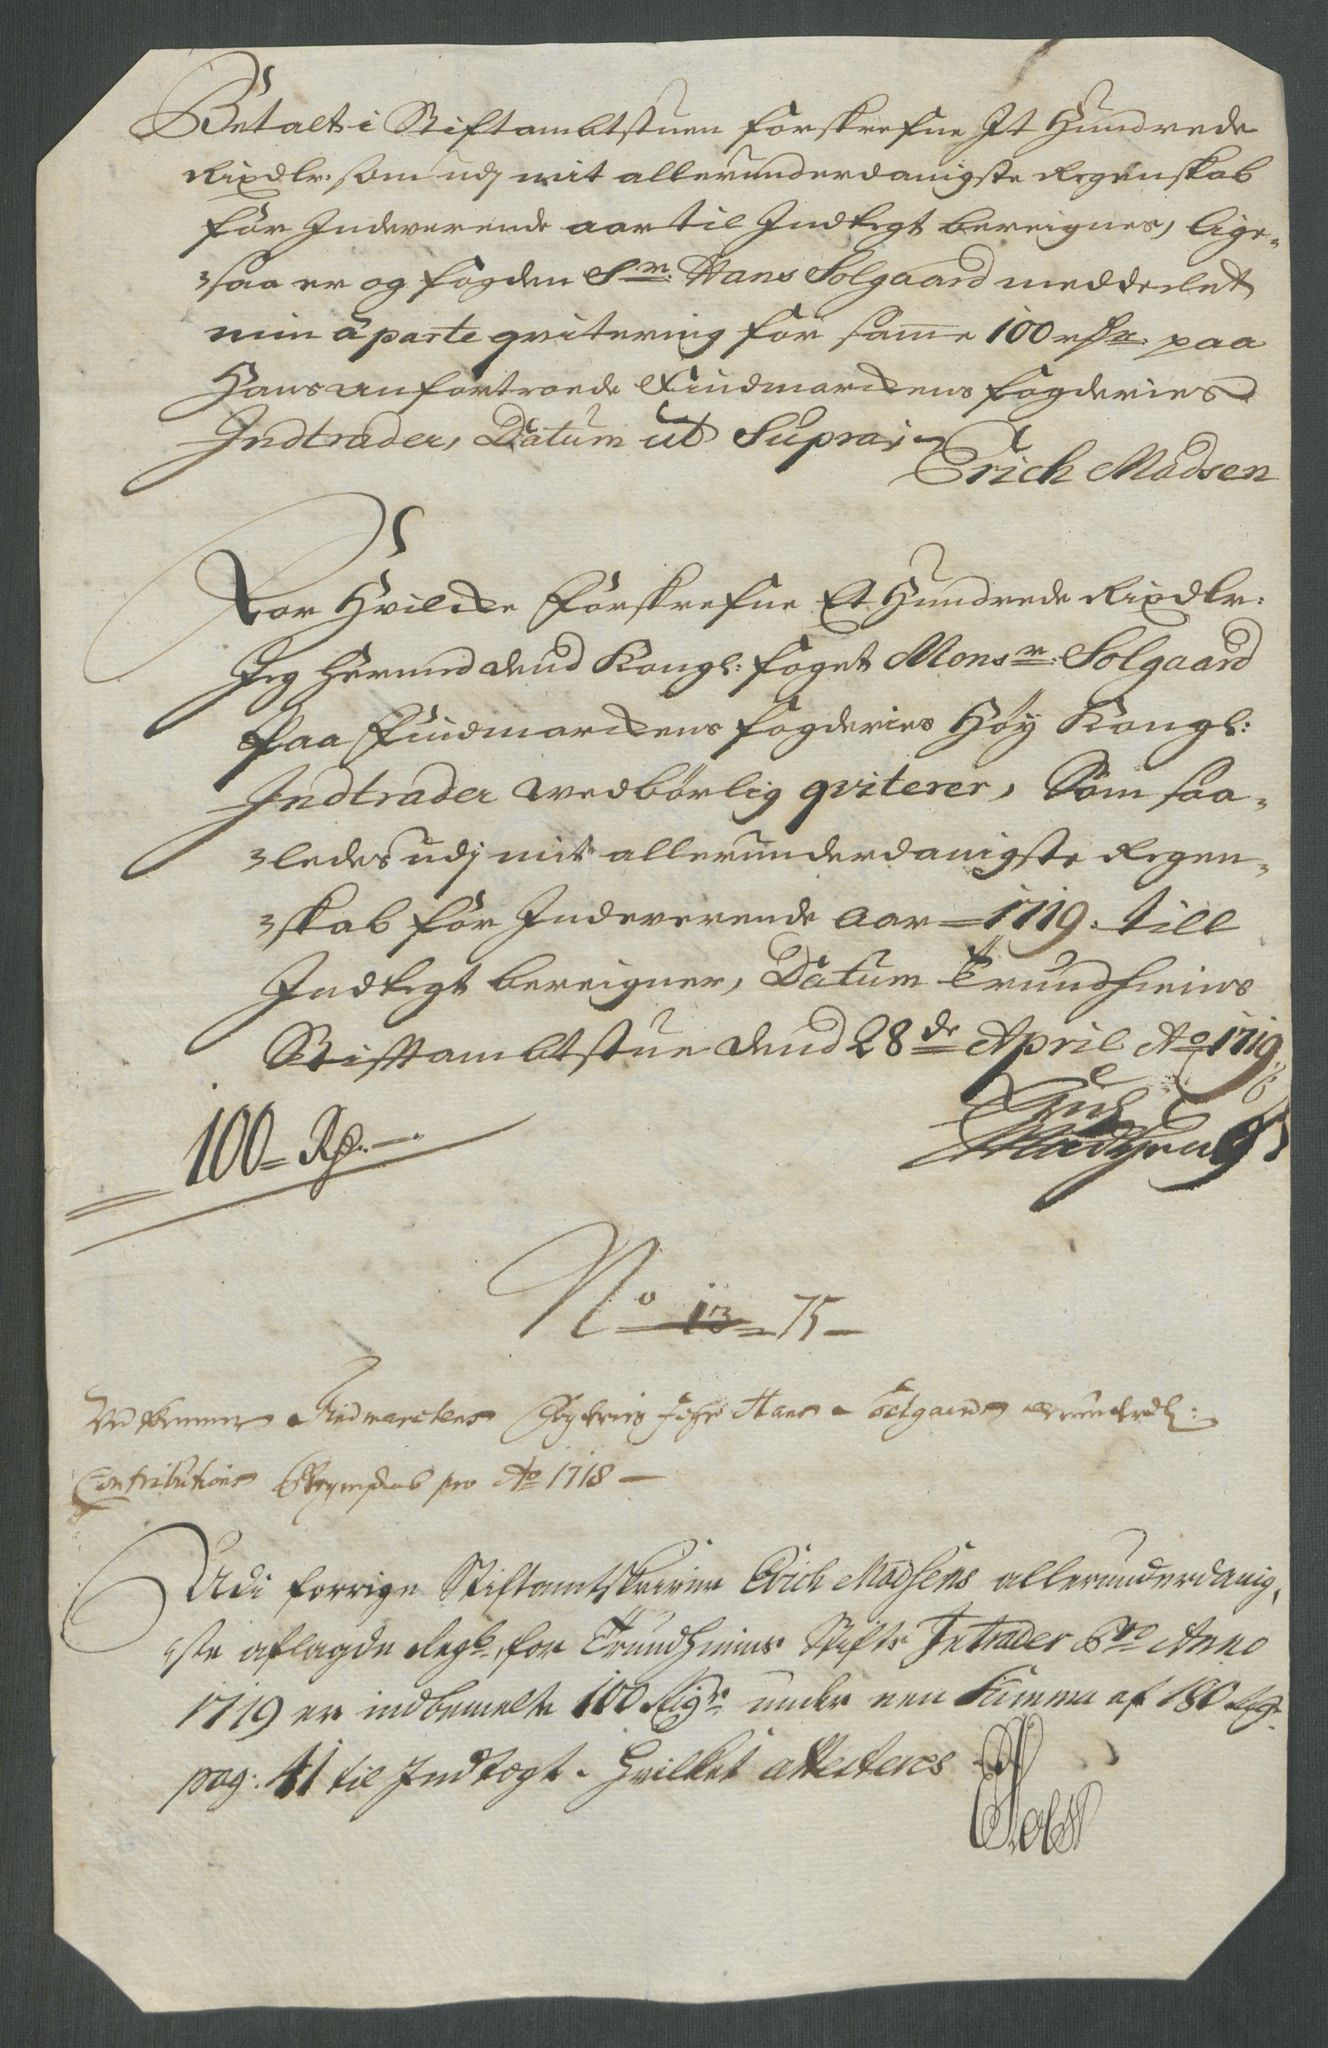 Betalt i Stiftambtstuen forskrefne It Hundrede
Rixdlr. som udj mit allerunderdanigste Regenskab
for Indeverende aar til Indtegt bereignes, lige-
saa er og fogden Sr. Hans Solgaard meddeelet
min à parte qvitering for samme 100 rdr. paa
Hans anfortroede Findmarckens fogderies
Indtrader, Datum ut Supra
Erich Madsen
For Hvilcke forskrefne Et Hundrede Rixdlr:
Jeg hermed dend Kongl: foget Monsr. Solgaard
Paa Findmarckens fogderies Höy Kongl:
Indtrader vedbörlig qviterer, Som saa-
ledes udj mit allerunderdanigste Regen-
skab for Indeverende Aar 1719. till
Indtegt bereigner, Datum Trundhiems
Stiftambtstue dend 28de April Ao 1719
Erich
Madtzen
100 Rd.
No 13 75
Vedkommer Findmarckens fogderies Hans Solgaards
Contributions Regenskab pro Ao 1718
Udi forrige Stiftamtskriver Erich Madsens allerunderdanig-
ste aflagde Regb. for Trundhiems Stifts Intrader pro Anno
1719 er indbemelte 100 Rdr under een Summa af 180 Rdr
pag: 41 til Indtegt. Hvilket attesteres